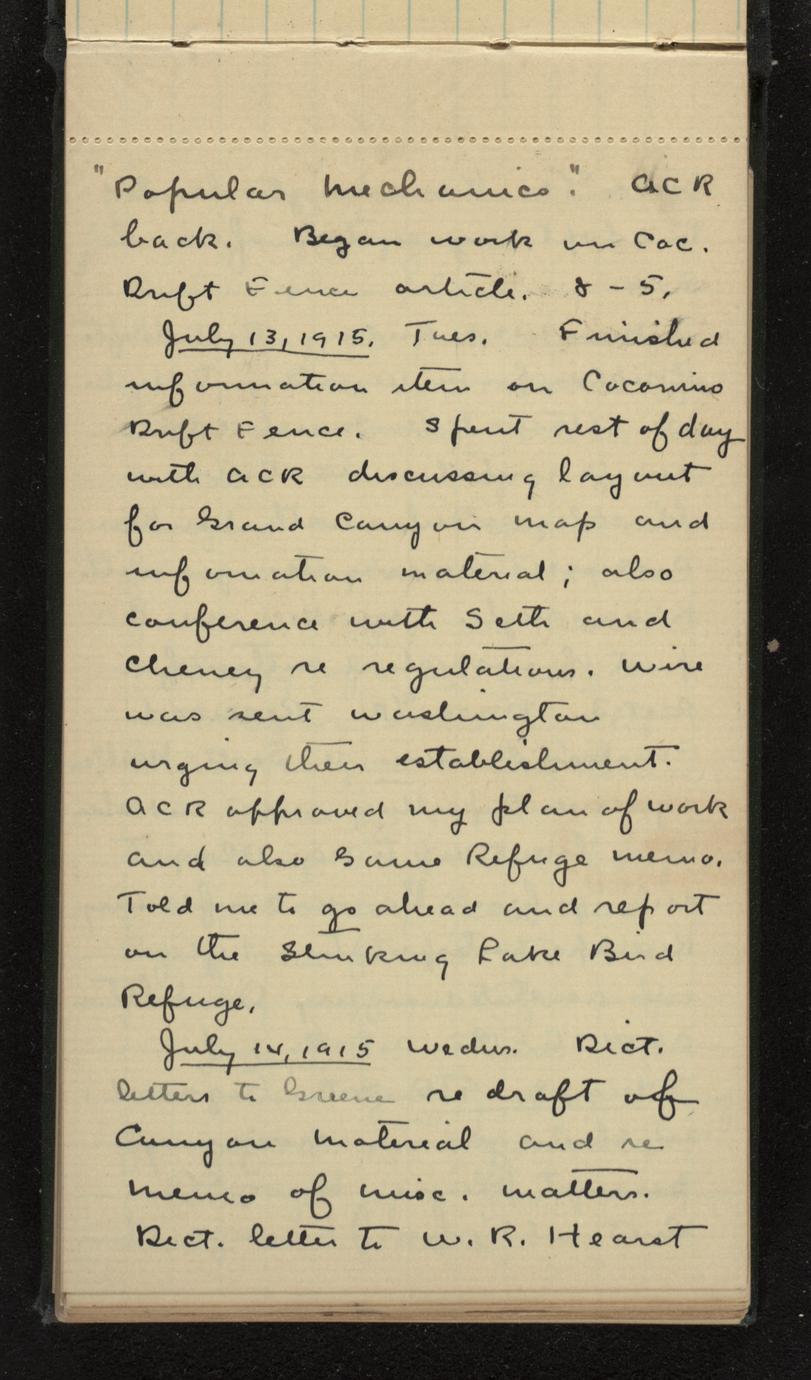 "Popular Mechanics." ACR
back. Began work on Coc.
Drift Fence article. 8 - 5.
July 13, 1915. Tues. Finished
information item on Coconino
Drift Fence. Spent rest of day
with ACR discussing layout
for Grand Canyon map and
information material; also
conference with Seth and
Cheney re regulations. Wire
was sent Washington
urging their establishment.
ACR approved my plan of work
and also Game Refuge memo.
Told me to go ahead and report
on the Stinking Lake Bird
Refuge.
July 14, 1915 Wednes. Dict.
letters to Greene re draft of
Canyon material and re
memo of misc. matters.
Dict. letter to W. R. Hearst